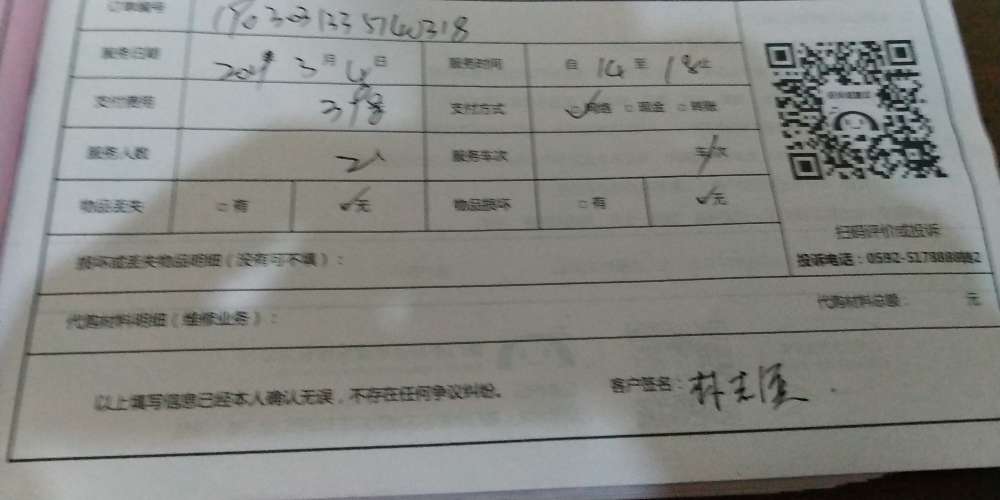 订单编号
服务日期 2019年 3月 4日 服务时间 自 14 至 18止
支付费用 398 支付方式 网络 □现金 □转账
服务人数 2人 服务车次 车/次
物品丢失 □有 ✓无 物品损坏 □有 ✓无
扫码评价或投诉
损坏或丢失物品明细（没有可不填）：
投诉电话：0592-5178888
代购材料明细（维修业务）： 代购材料总额： 元
以上填写信息已经本人确认无误，不存在任何争议纠纷。 客户签名：林志